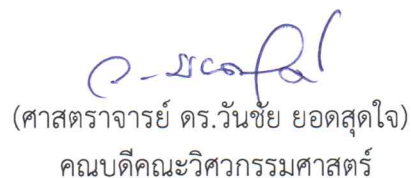 (ศาสตราจารย์ ดร.วันชัย ยอดสุดใจ)
คณบดีคณะวิศวกรรมศาสตร์